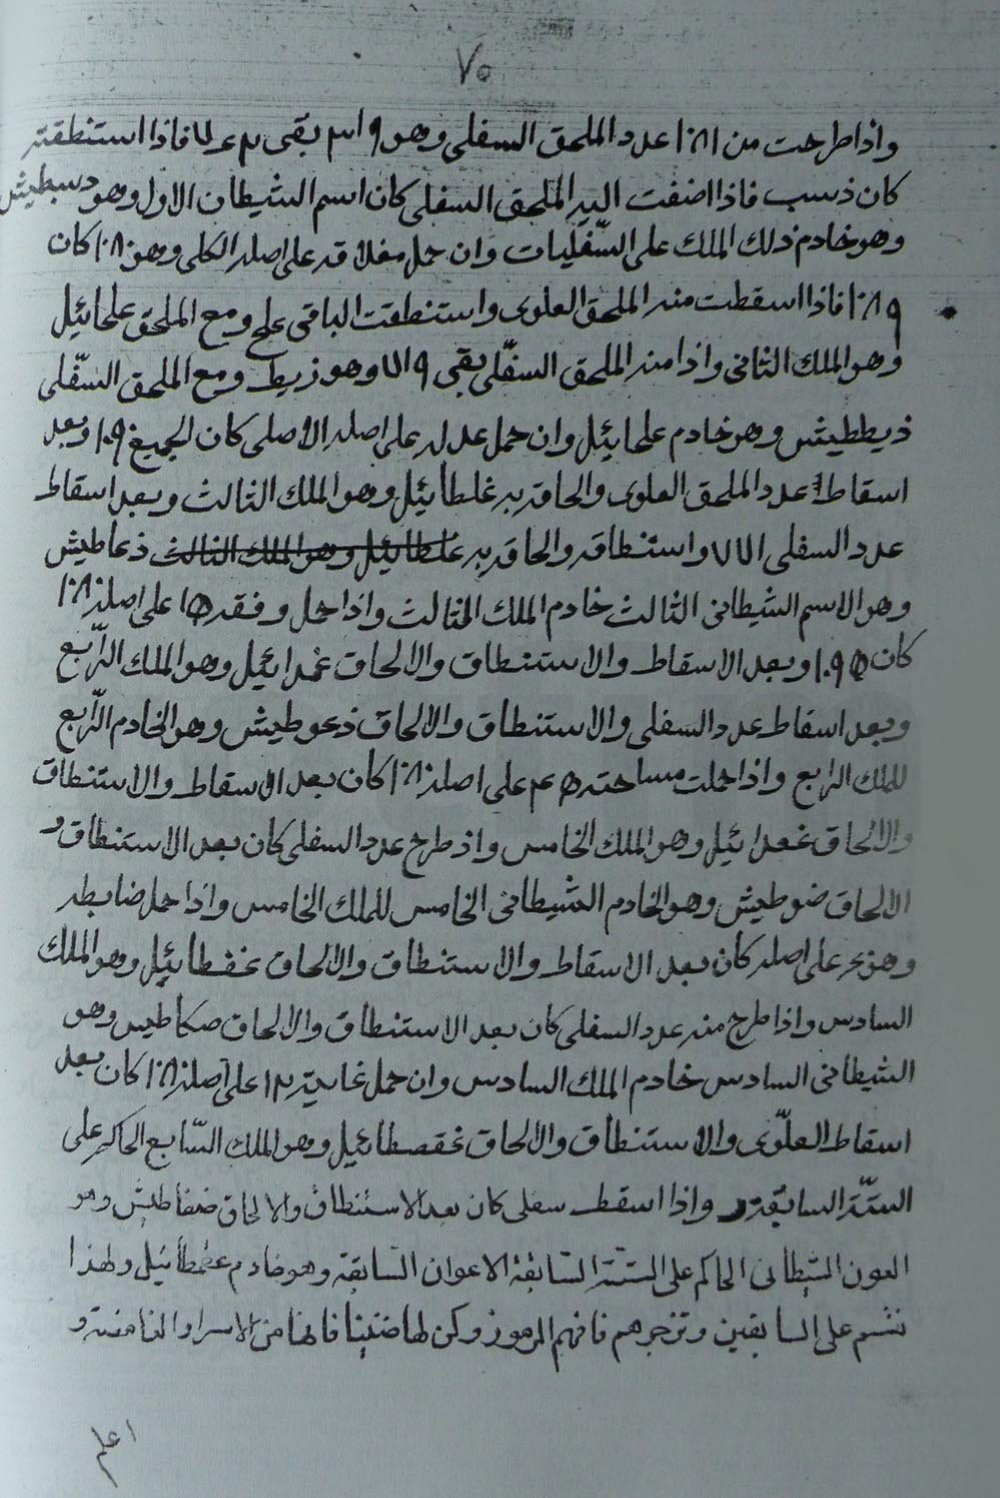 ٧٥
واذا طرحت من ١٠٨١ عدد الملحق السفلى وهو ٣١٩ بقى ٧٦٢ فاذا استنطقته
كان ذسب فاذا اضفت اليه الملحق السفلى كان اسم الشيطان الاول وهو ذسبطيش
وهو خادم ذلك الملك على السّفليات وان حمل مغلاقه على اصله الكلى وهو ١٠٨٠ كان
١٠٨٩ فاذا اسقطت منه الملحق العلوى واستنطقت الباقى ومع الملحق علحائيل
وهو الملك الثانى واذا منه الملحق السفّلى بقى وهو ذيط ومع الملحق السفّلى
ذيططيش وهو خادم علحائيل وان حمل عدله على اصله الاصلى كان الجميع ١٠٩ وبعد
اسقاط عدد الملحق العلوى والحاقه به غلطائيل وهو الملك الثالث وبعد اسقاط
عدد السفلى واستنطاقه والحاقه به غلطائيل وهو الملك الثالث ذعاطيش
وهو الاسم الشيطانى الثالث خادم الملك الثالث واذا حمل وفقه ١٥ على اصله ١٠٨٠
كان ١٠٩٥ وبعد الاسقاط والاستنطاق والالحاق غمدائيل وهو الملك الرّابع
وبعد اسقاط عدد السفلى والاستنطاق والالحاق ذعوطيش وهو الخادم الرّابع
للملك الرابع واذا حملت مساحته ٤٥ على اصله ١٠٨٠ كان بعد الاسقاط والاستنطاق
والالحاق غعدائيل وهو الملك الخامس واذ طرح عدد السفلى كان بعد الاستنطاق و
الالحاق ضوطيش وهو الخادم الشيطانى الخامس للملك الخامس واذا حمل ضابطه
وهو على اصله كان بعد الاسقاط والاستنطاق والالحاق غفطائيل وهو الملك
السادس واذا طرح منه عدد السفلى كان بعد الاستنطاق والالحاق ضكاطيس وهو
الشيطانى السادس خادم الملك السادس وان حمل غايته على اصله ١٠٨٠ كان بعد
اسقاط العلّوى والاستنطاق والالحاق غقصطائيل وهو الملك السّابع الحاكم على
الستّة السابقة واذا اسقط سفلى كان بعد الاستنطاق والالحاق ضفاطيش وهو
العون الشيطانى الحاكم على الستّة السّابقة الاعوان السّابقة وهو خادم ولهذا
تقسم على السابقين وتزجرهم فافهم الرموز وكن لها ضنينا فانها من الاسرار الغامضة و
اعلم